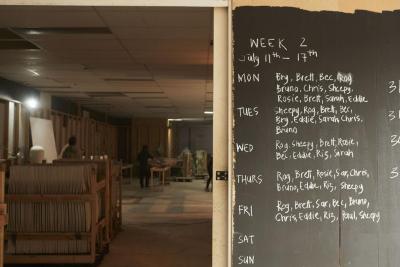 WEEK 2
July 11th - 17th
MON Bry, Brett, Bec, Rog
Bruno, Chris, Sheepy,
Rosie, Brett, Sarah, Eddie
TUES Sheepy, Rog, Brett, Bec,
Bry, Eddie, Sarah, Chris,
Bruno
WED Rog, Sheepy, Brett, Rosie,
Bec, Eddie, Riz, Sarah
THURS Rog, Brett, Rosie, Sar, Chris,
Bruno, Eddie, Riz, Sheepy
FRI Rog, Brett, Sar, Bec, Bruno,
Chris, Eddie, Riz, Paul, Sheepy
SAT
SUN